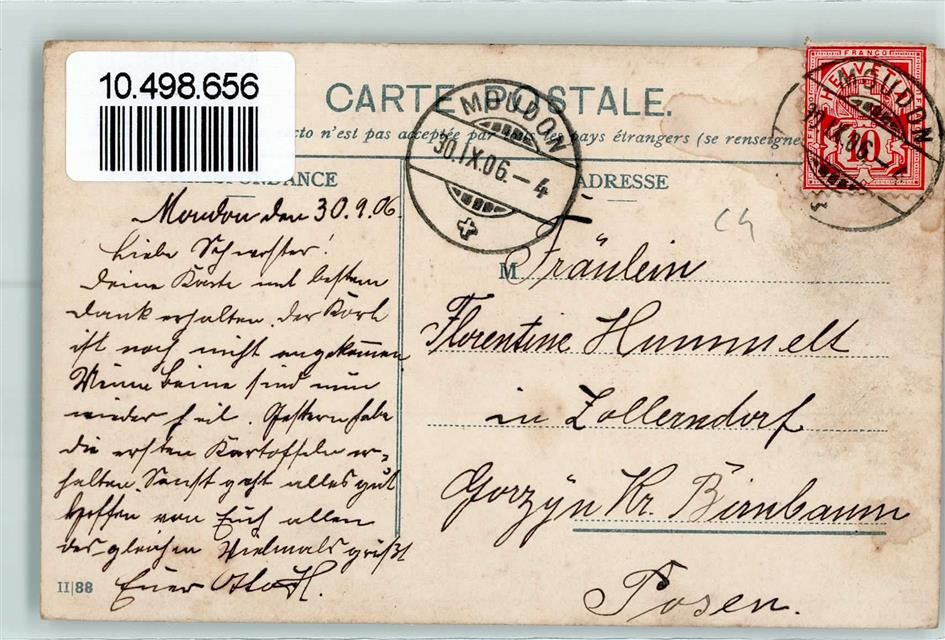 10.498.656
CARTE POSTALE.
cto n'est pas acceptée par tous les pays étrangers (se renseigne
RRESPONDANCE
ADRESSE
MOUDON
30.IX.06.–4
FRANCO
HELVETIA
10
MOUDON
30.IX.06.–4
C4
Moudon den 30.9.06
Liebe Schwester!
Deine Karte mit bestem
Dank erhalten. Der Korb
ist noch nicht angekommen
Meine Beine sind nun
wieder heil. Gestern habe
die ersten Kartoffeln er-
halten. Sonst geht alles gut
Hoffen von Euch allen
des gleichen Vielmals grüßt
Euer Otto H.
M Fräulein
Florentine Hummelt
in Zollerndorf
Gorzyn Kr. Birnbaum
Posen.
II|88